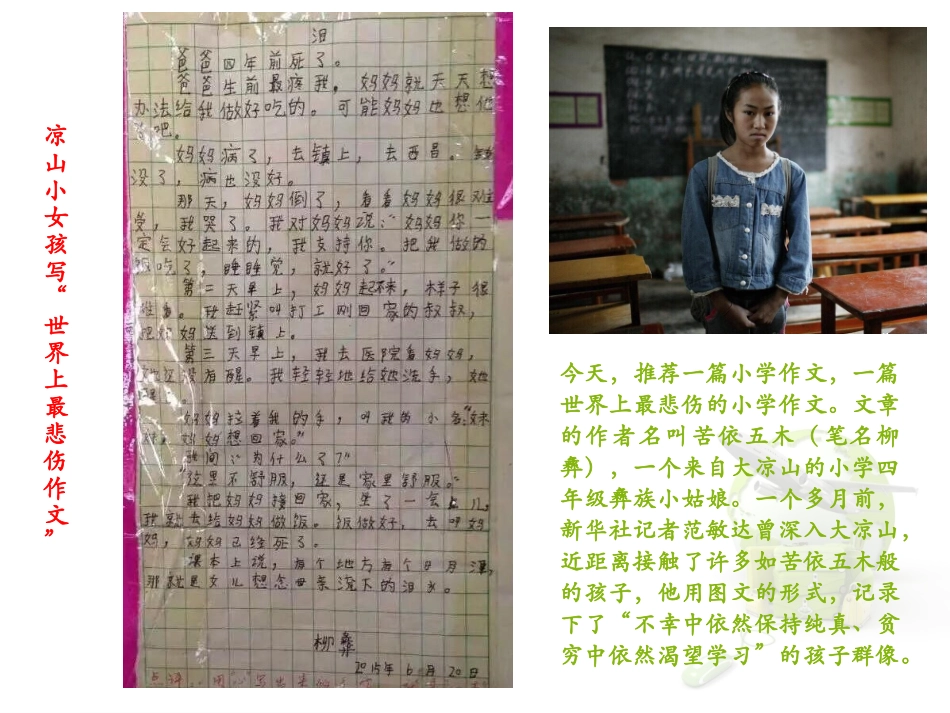 凉山小女孩写“世界上最悲伤作文”
泪
爸爸四年前死了。
爸爸生前最疼我，妈妈就天天想
办法给我做好吃的。可能妈妈也想他
了吧。
妈妈病了，去镇上，去西昌。钱
没了，病也没好。
那天，妈妈倒了，看着妈妈很难
受，我哭了。我对妈妈说：“妈妈你一
定会好起来的，我支持你。把我做的
饭吃了，睡睡觉，就好了。”
第二天早上，妈妈起不来，样子很
难看。我赶紧叫打工刚回家的叔叔，
把妈妈送到镇上。
第三天早上，我去医院看妈妈，
她还没有醒。我轻轻地给她洗手，她
妈妈拉着我的手，叫我的小名“妹
妹，妈妈想回家。”
我问：“为什么了？”
“这里不舒服，还是家里舒服。”
我把妈妈接回家，坐了一会儿，
我就去给妈妈做饭。饭做好，去叫妈
妈，妈妈已经死了。
课本上说，有个地方有个日月潭，
那就是女儿想念母亲流下的泪水。
柳彝
2015年6月20日
今天，推荐一篇小学作文，一篇
世界上最悲伤的小学作文。文章
的作者名叫苦依五木（笔名柳
彝），一个来自大凉山的小学四
年级彝族小姑娘。一个多月前，
新华社记者范敏达曾深入大凉山，
近距离接触了许多如苦依五木般
的孩子，他用图文的形式，记录
下了“不幸中依然保持纯真、贫
穷中依然渴望学习”的孩子群像。